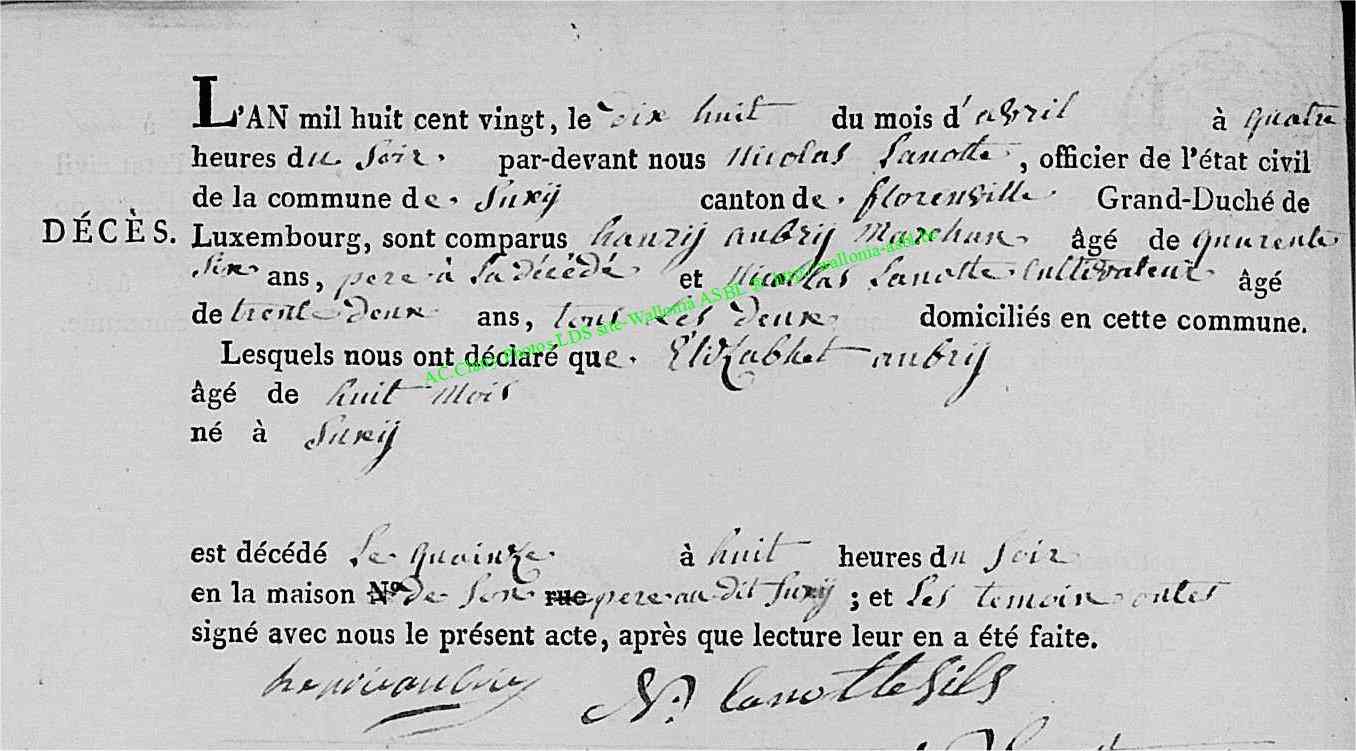 L'AN mil huit cent vingt, le dix huit du mois d'abril à quatre
heures du soir. par-devant nous Nicolas Lanotte, officier de l'état civil
de la commune de. Suxÿ canton de. florenville Grand-Duché de
DÉCÈS. Luxembourg, sont comparus hanrÿ aubrÿ Marchan âgé de quarente
six ans, pere à La décédé et Nicollas Lanotte Cultivateur âgé
de trente deux ans, tous Les deux domiciliés en cette commune.
Lesquels nous ont déclaré que. Elizabhet aubrÿ
âgé de huit mois
né à Suxÿ
est décédé Le quainze à huit heures du soir
en la maison N.º de son rue pere au dit Suxÿ ; et Les temoin ontes
signé avec nous le présent acte, après que lecture leur en a été faite.
N. lanotte fils
AC.Chiny Photos LDS site-Wallonia ASBL @ http://wallonia-asbl.be